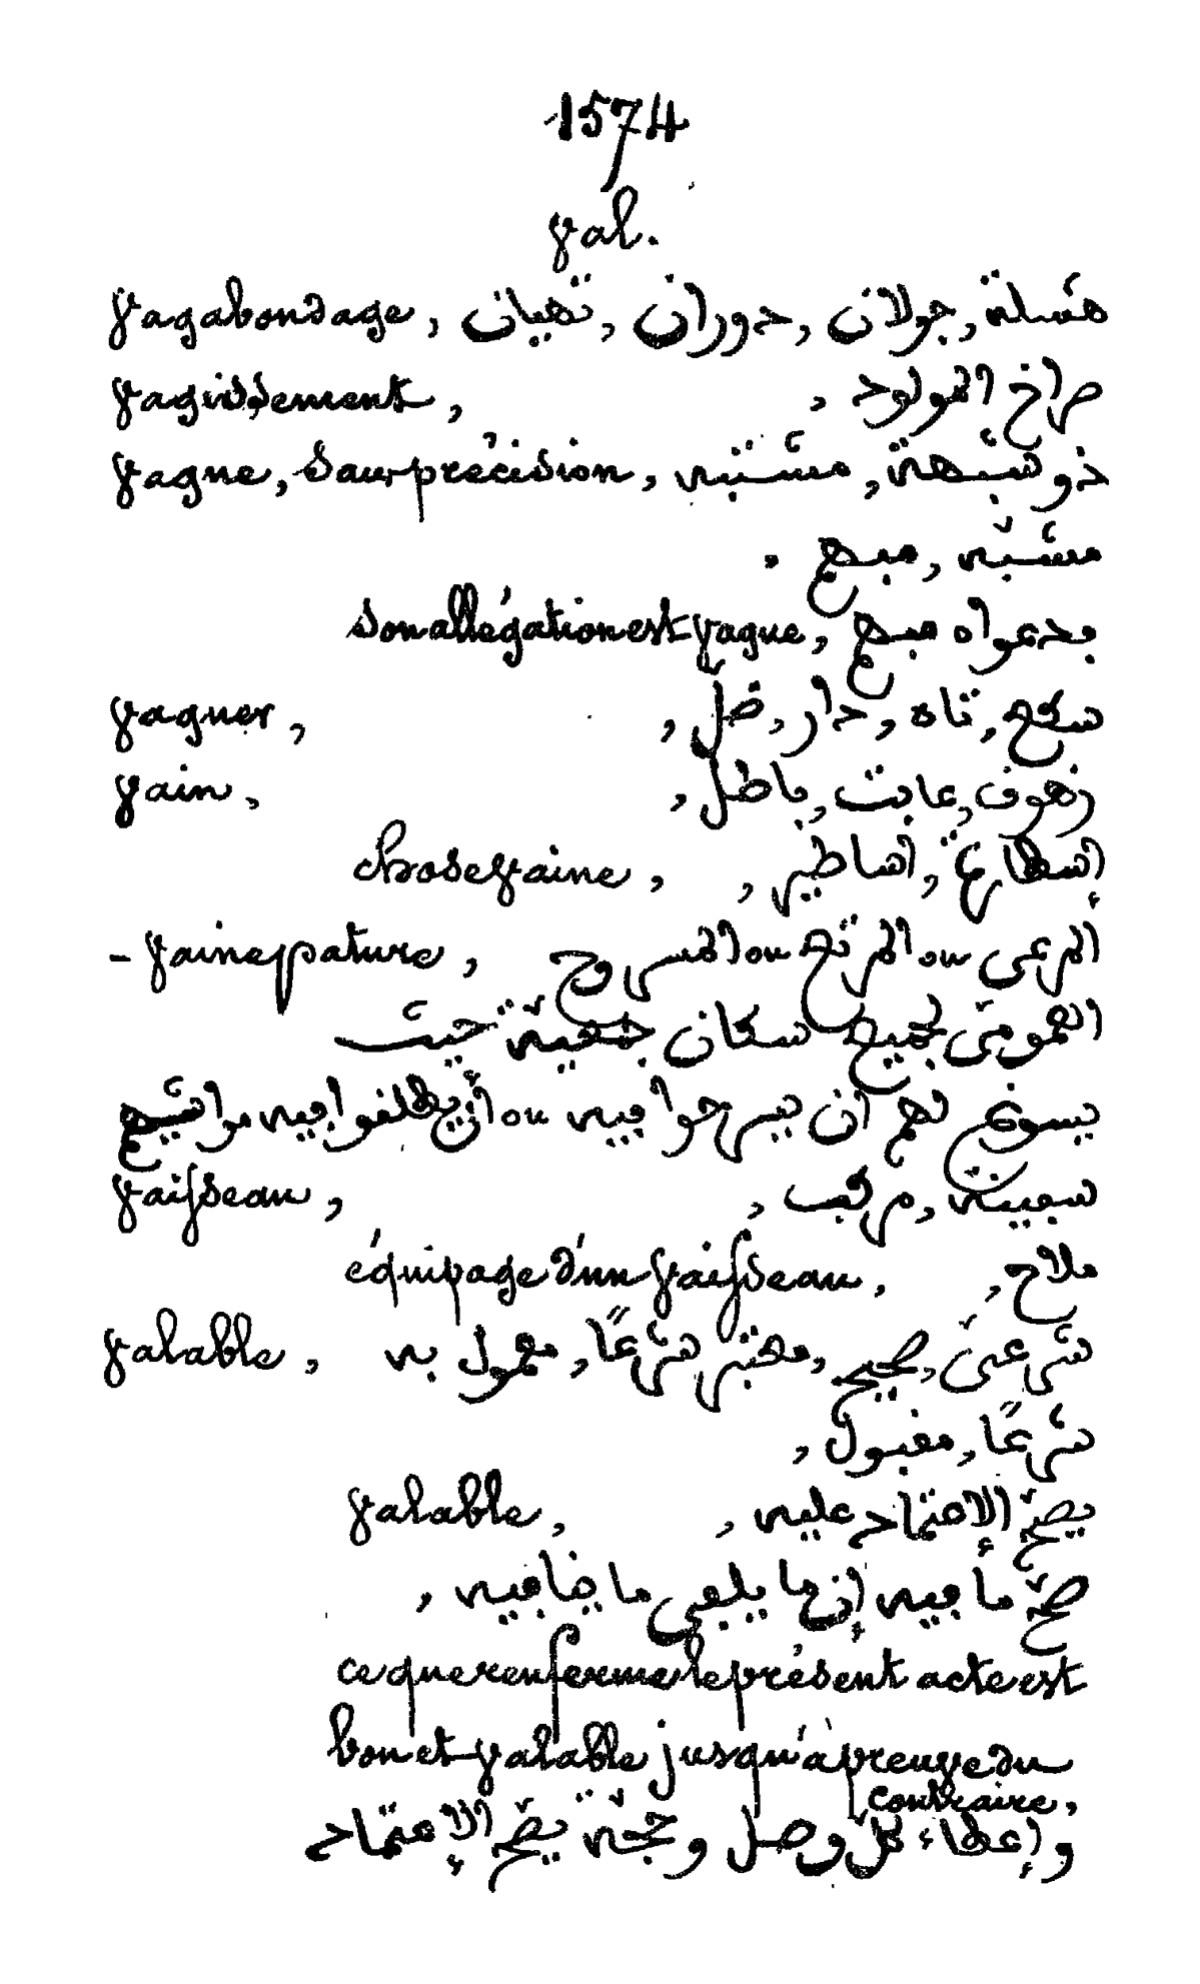 1574
Val.
Vagabondage, تهيان, دوران, جولان, هشلة
Vagissement, صراخ المولود,
Vague, sans précision, مشتبه, ذو شبهة
مشبّه, مبهم.
son allégation est vague, فدعواه مبهم
Vaguer, سكع, تاه, دار, ضلّ,
Vain, زهوق, عابث, باطل,
chose vaine, إسطارة, أساطير,
- Vaine pature, المرعى ou المرتع ou المسروح
العمومّى لجميع سكان جمعيّة حيث
يسوغ لهم ان يسرحوا فيه ou أن يطلقوا فيه مواشيهم
Vaisseau, سفينة, مركب,
équipage d'un vaisseau, ملاح,
Valable, شرعىّ, صحيح, معتبر شرعًا, معمول به
شرعًا, مقبول,
Valable, يصحّ الإعتماد عليه,
صحّ ما فيه إن ما يلفى ما يضافيه,
ce que renferme le présent acte est
bon et valable jusqu'à preuve du
contraire,
وإعطاء كلّ وصل وحجّة يصحّ الإعتماد